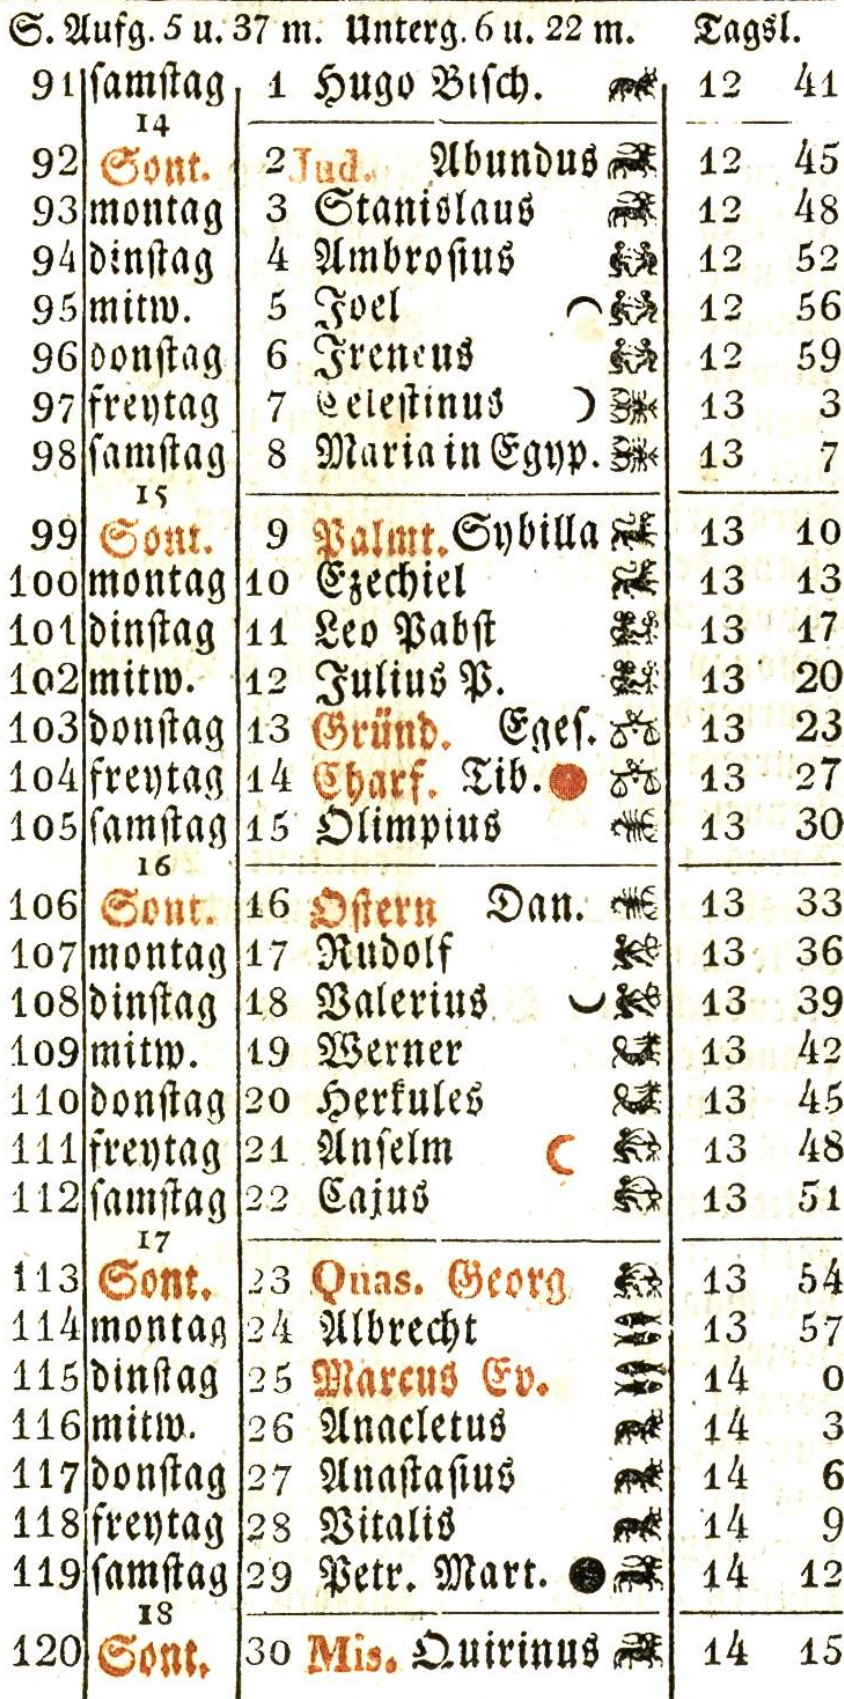 S. Aufg. 5 u. 37 m. Unterg. 6 u. 22 m. Tagsl.
91 samstag 1 Hugo Bisch. 12 41
14
92 Sont. 2 Jud. Abundus 12 45
93 montag 3 Stanislaus 12 48
94 dinstag 4 Ambrosius 12 52
95 mitw. 5 Joel 12 56
96 donstag 6 Ireneus 12 59
97 freytag 7 Celestinus 13 3
98 samstag 8 Maria in Egyp. 13 7
15
99 Sont. 9 Palmt. Sybilla 13 10
100 montag 10 Ezechiel 13 13
101 dinstag 11 Leo Pabst 13 17
102 mitw. 12 Julius P. 13 20
103 donstag 13 Gründ. Eges. 13 23
104 freytag 14 Charf. Tib. 13 27
105 samstag 15 Olimpius 13 30
16
106 Sont. 16 Ostern Dan. 13 33
107 montag 17 Rudolf 13 36
108 dinstag 18 Valerius 13 39
109 mitw. 19 Werner 13 42
110 donstag 20 Herkules 13 45
111 freytag 21 Anselm 13 48
112 samstag 22 Cajus 13 51
17
113 Sont. 23 Quas. Georg 13 54
114 montag 24 Albrecht 13 57
115 dinstag 25 Marcus Ev. 14 0
116 mitw. 26 Anacletus 14 3
117 donstag 27 Anastasius 14 6
118 freytag 28 Vitalis 14 9
119 samstag 29 Petr. Mart. 14 12
18
120 Sont. 30 Mis. Quirinus 14 15